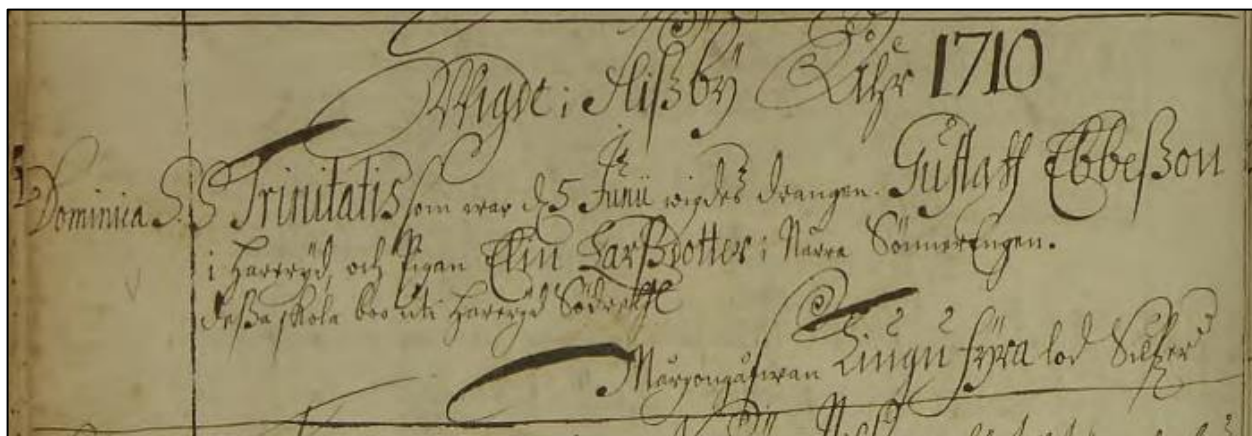 Wigde i Flißbÿ Åhr 1710
Dominica S. S Trinitatis som war d. 5 Junii wigdes drangen. Gustaff Ebbeßon
i Hareryd, och Pigan Elin Larßdotter i Norra Sönnerengen.
deßa skola boo uti Hareryd
Morgongåfwan Tiugu fÿra lod Silfwer